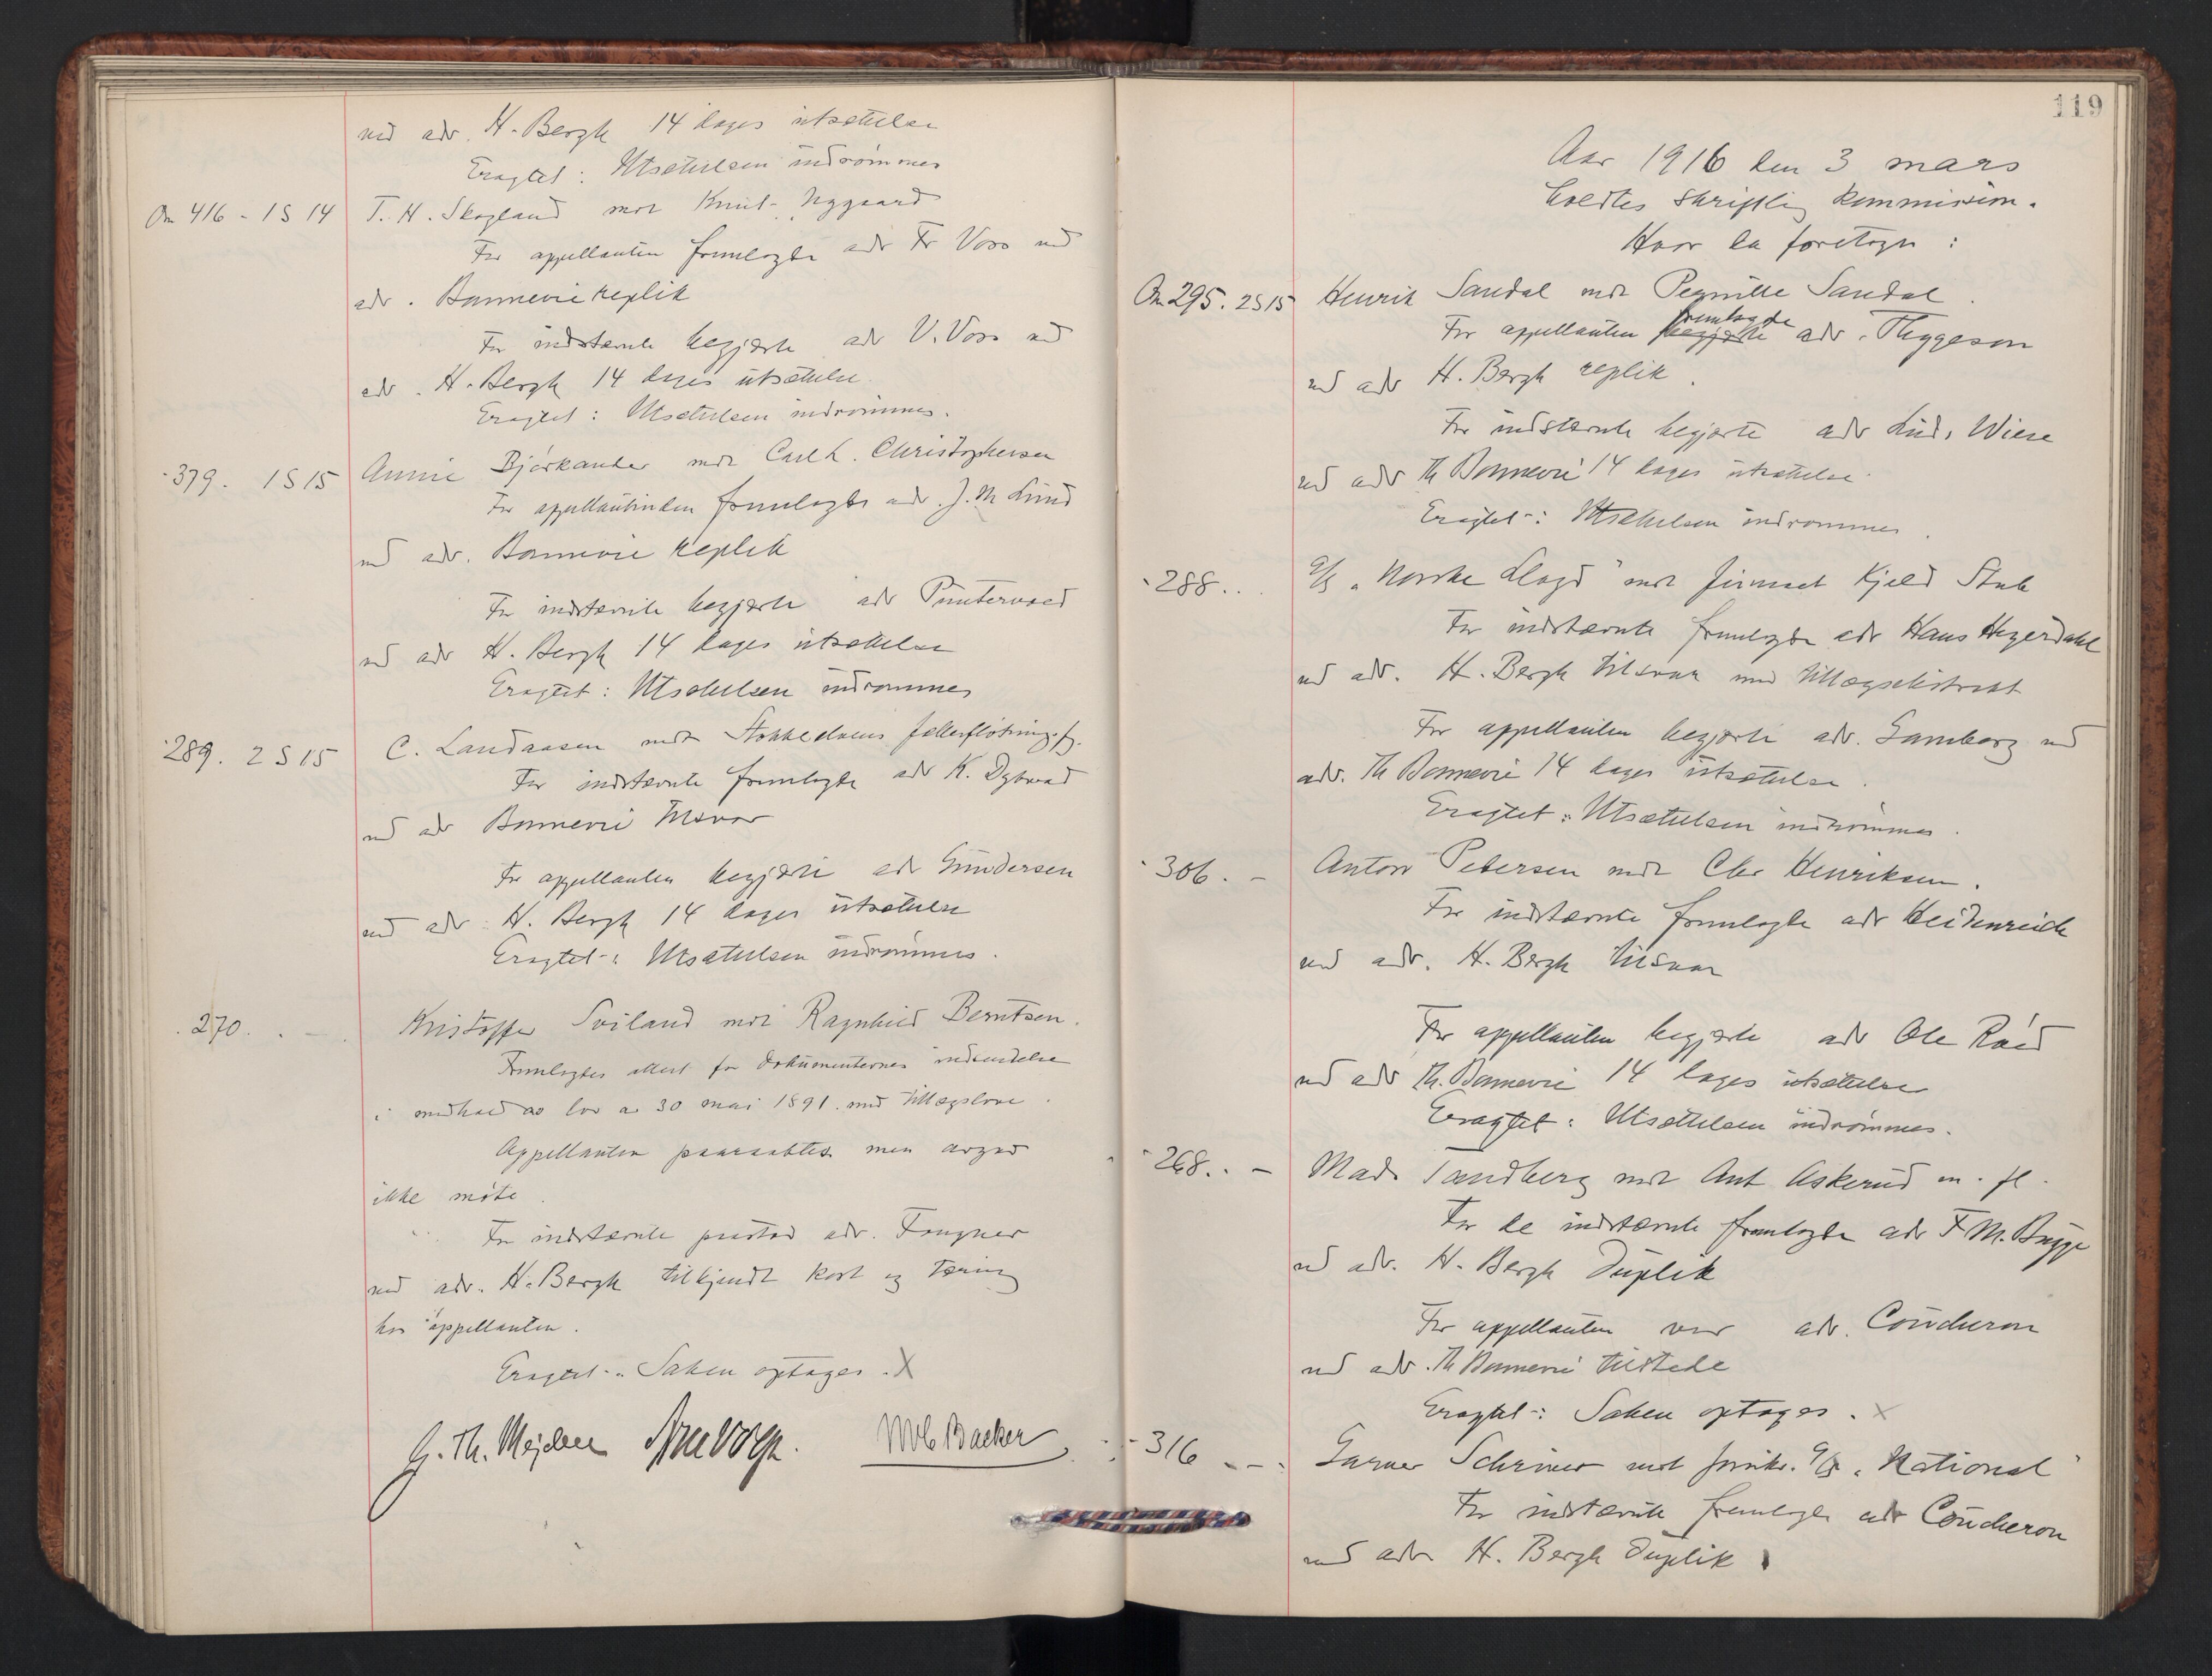 ved adv. H. Bergh 14 dages utsættelse
Eragtet: Utsættelsen indrømmes
On 416 - 1 S 14 T. H. Skogland mot Knut Nygaard
For appellanten fremlagde adv Fr Voss ved
adv. Bonnevie replik
For indstevnte begjærte adv V. Voss ved
adv. H. Bergh 14 dages utsættelse.
Eragtet: Utsættelsen indrømmes.
- 379. 1 S 15 Annie Bjørkander mot Carl L. Christophersen
For appellantinden fremlagde adv. J. M Lund
ved adv. Bonnevie replik
For indstevnte begjærte adv Puntervold
ved adv H. Bergh 14 dages utsættelse
Eragtet: Utsættelsen indrømmes
- 289. 2 S 15 C. Landaasen mot Stokkeelvens fellesfløtningsf.
For indstevnte fremlagde adv K. Dybwad
ved adv Bonnevie tilsvar
For appellanten begjærte adv Gundersen
ved adv. H. Bergh 14 dages utsættelse
Eragtet: Utsættelsen indrømmes.
- 270. - Kristoffer Soiland mot Ragnhild Berntsen.
Fremlagdes attest for dokumenternes indsendelse
i medhold av lov av 30 mai 1891 med tillægslove.
Appellanten paaraabtes men avgav
ikke møte.
For indstevnte paastod adv. Fougner
ved adv. H. Bergh tilkjendt kost og tæring
hos appellanten.
Eragtet: Saken optages. X
G. Th. Mejdell
Backer
119
Aar 1916 den 3 mars
holdtes skriftlig kommission.
Hvor da foretoges:
On 295. 2S15 Henrik Sandal mot Pernille Sandal.
fremlagde
For appellanten begjærte adv. Thygeson
ved adv H. Bergh replik.
For indstevnte begjærte adv Lud. Wiese
ved adv Th Bonnevie 14 dages utsættelse.
Eragtet: Utsættelsen indrømmes.
- 288. . A/S "Norske Lloyd" mot firmaet Kjeld Stub
For indstevnte fremlagde adv Hans Heyerdahl
ved adv. H. Bergh tilsvar med tillægsekstrakt
For appellanten begjærte adv. Lamberg ved
adv. Th Bonnevie 14 dages utsættelse.
Eragtet: Utsættelsen indrømmes.
- 306. - Anton Petersen mot Chr Henriksen.
For indstevnte fremlagde adv Heidenreich
ved adv. H. Bergh tilsvar
For appellanten begjærte adv Ole Røed
ved adv Th. Bonnevie 14 dages utsættelse
Eragtet: Utsættelsen indrømmes.
- 268. . - Mads Sandberg mot Ant Askerud m. fl.
For de indstevnte fremlagde adv F M. Bugge
ved adv. H. Bergh duplik
For appellanten var adv. Coucheron
ved adv. Th Bonnevie tilstede
Eragtet: Saken optages. X
- 316 - - Schriwer mot A/S "National"
For indstevnte fremlagde adv Coucheron
ved adv H. Bergh duplik